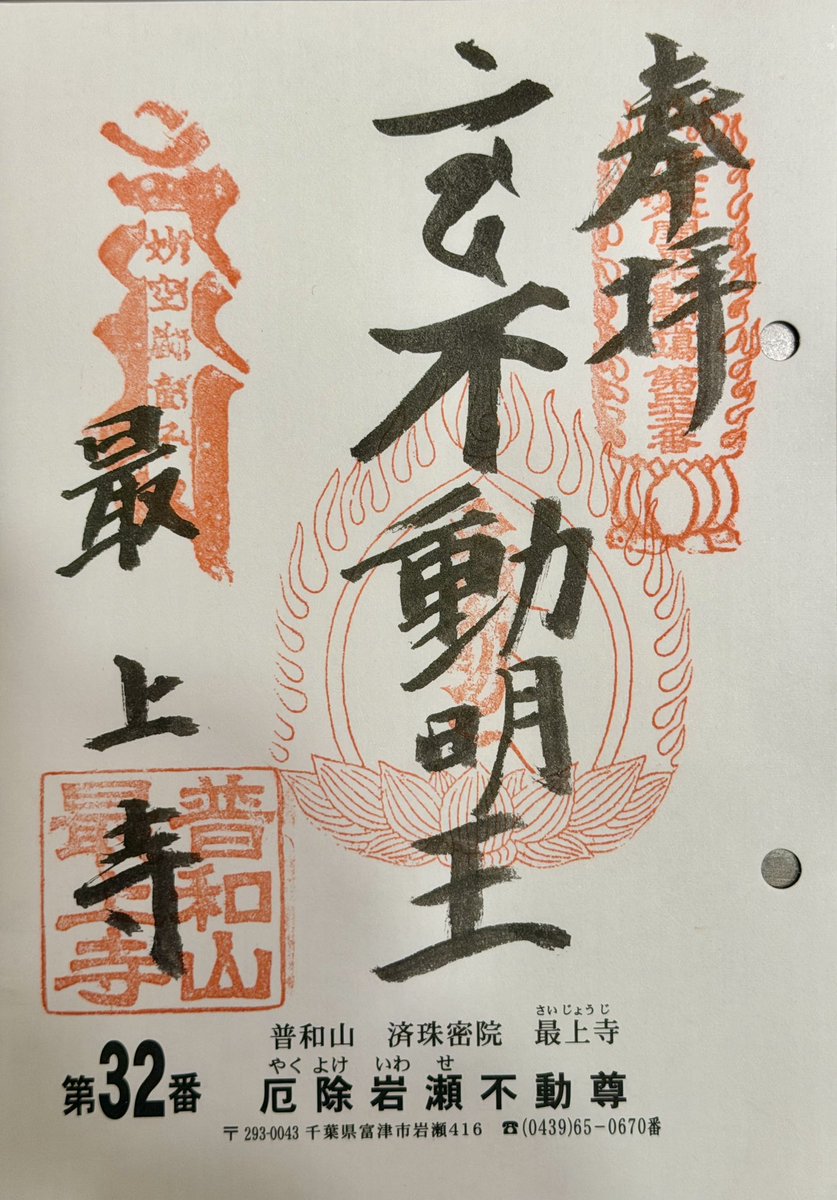 奉拝
玄不動明王
最上寺
普和山
最上寺
さいじょうじ
普和山 済珠密院 最上寺
第32番
やくよけ いわせ
厄除岩瀬不動尊
〒293-0043 千葉県富津市岩瀬416 ☎(0439)65-0670番